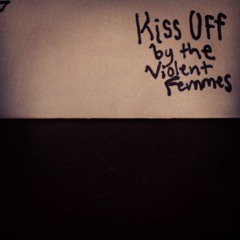 Kiss Off
by the
Violent
Femmes